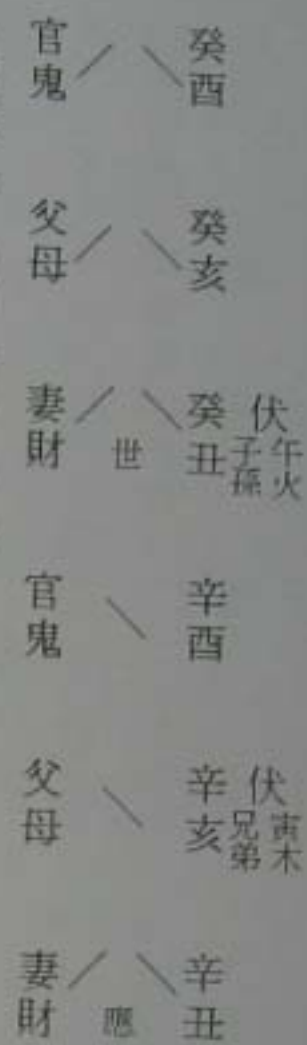 官鬼 癸酉
父母 癸亥
妻財 世 癸丑 伏 子孫 午火
官鬼 辛酉
父母 辛亥 伏 兄弟 寅木
妻財 應 辛丑